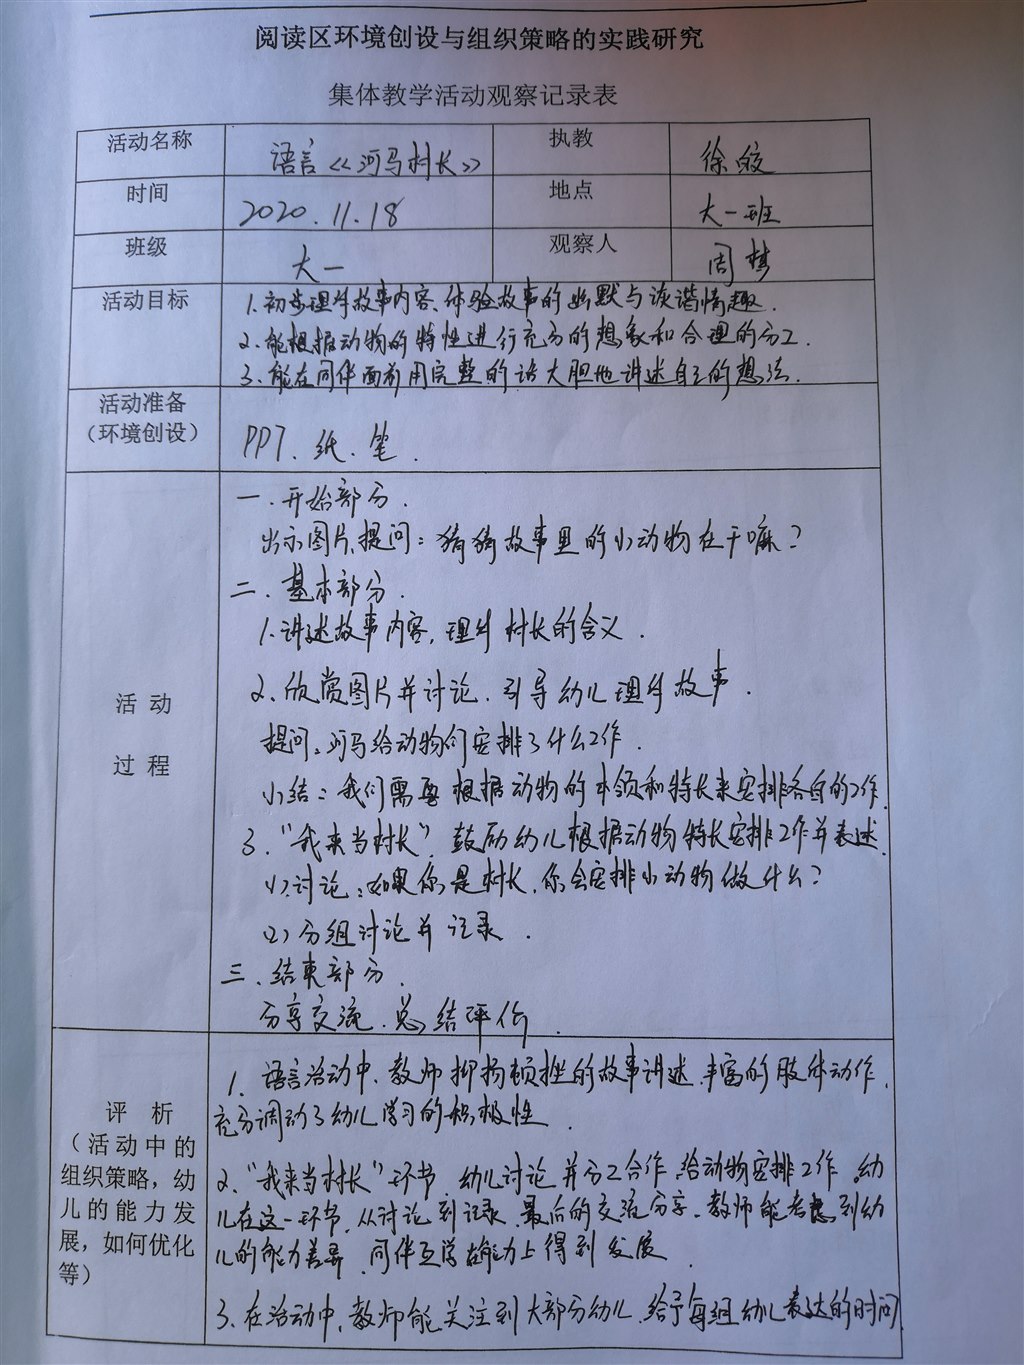 阅读区环境创设与组织策略的实践研究
集体教学活动观察记录表
活动名称 语言《河马村长》 执教 徐皎
时间 2020.11.18 地点 大一班
班级 大一 观察人 周梦
活动目标 1.初步理解故事内容、体验故事的幽默与诙谐情趣.
2.能根据动物的特性进行充分的想象和合理的分工.
3.能在同伴面前用完整的话大胆地讲述自己的想法.
活动准备
（环境创设） PPT、纸、笔.
活动
过程
一.开始部分.
出示图片,提问：猜猜故事里的小动物在干嘛？
二.基本部分.
1.讲述故事内容,理解村长的含义.
2.欣赏图片并讨论,引导幼儿理解故事.
提问：河马给动物们安排了什么工作.
小结：我们需要根据动物的本领和特长来安排各自的工作.
3."我来当村长",鼓励幼儿根据动物特长安排工作并表述.
(1)讨论：如果你是村长,你会安排小动物做什么?
(2)分组讨论并记录.
三.结束部分.
分享交流.总结评价.
评析
（活动中的
组织策略，幼
儿的能力发
展，如何优化
等）
1.语言活动中,教师抑扬顿挫的故事讲述、丰富的肢体动作,
充分调动了幼儿学习的积极性.
2."我来当村长"环节,幼儿讨论并分工合作,给动物安排工作.幼
儿在这一环节,从讨论到记录,最后的交流分享,教师能考虑到幼
儿的能力差异,同伴互学,在能力上得到发展
3.在活动中,教师能关注到大部分幼儿,给予每组幼儿表达的时间